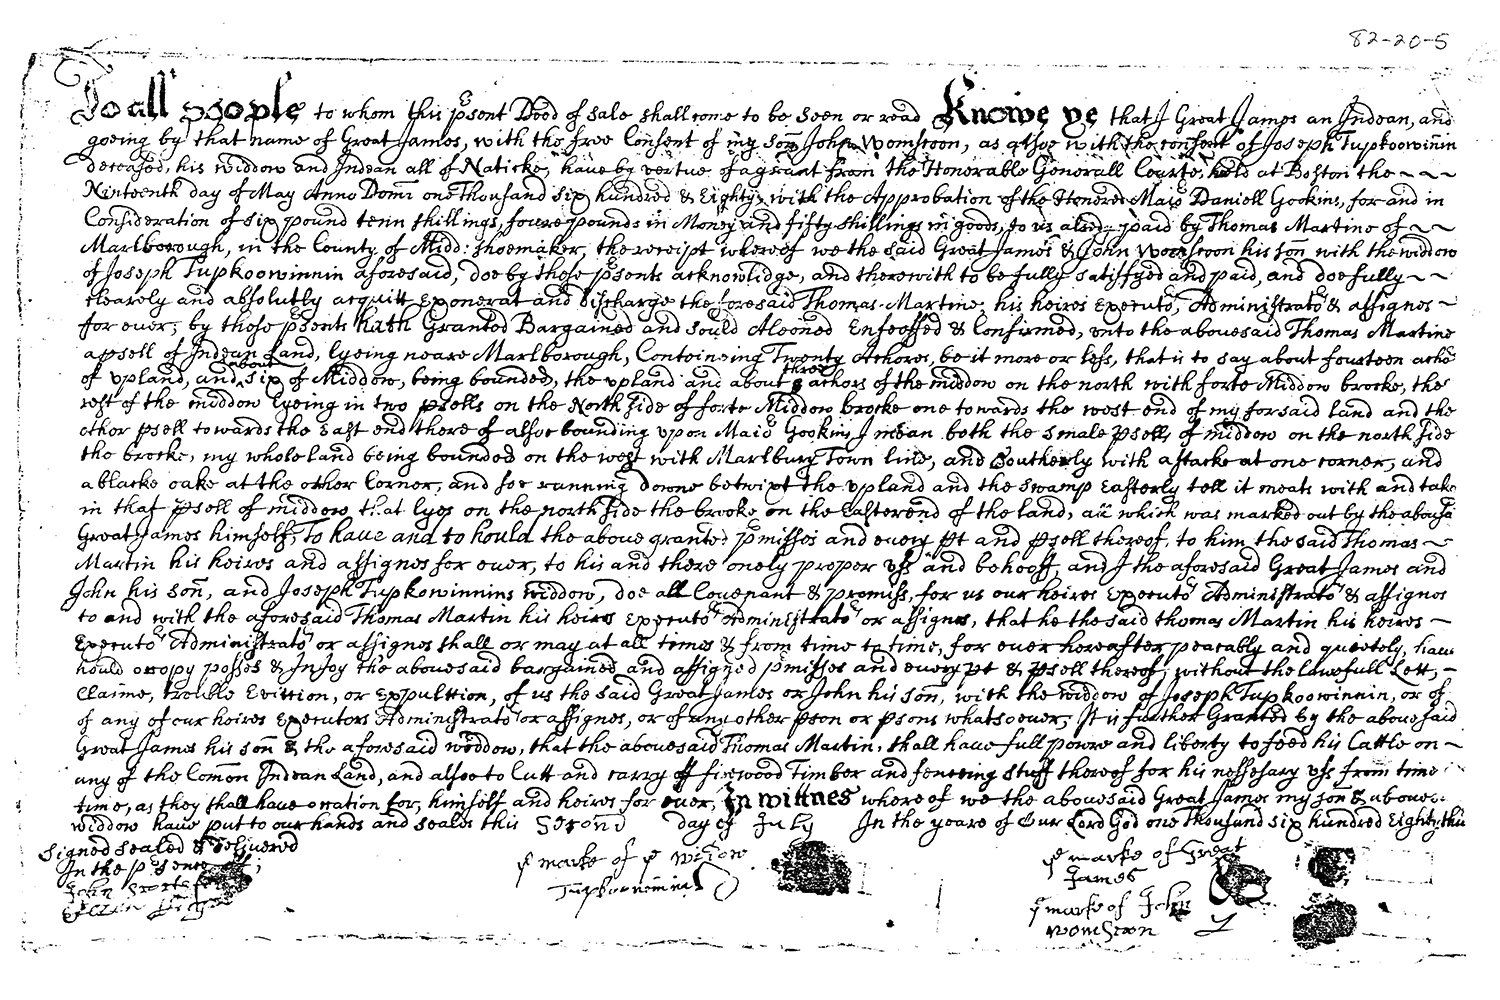 82-20-5
To all people to whom this psent Deed of sale shall come to be seen or read Knowe ye that I Great James an Indean, and
goeing by that name of Great James, with the free Consent of my son John Womscon, as alsoe with the consent of Joseph Tupkoowinnin
deceased, his widdow and Indean all of Naticke, have by vertue of a grant from the Honorable Generall Courte, held at Boston the
Ninteenth day of May Anno Domi one Thousand six hundred & Eighty, with the Approbation of the Honored Maio Daniell Gookins, for and in
Consideration of six pound tenn shillings, foure pounds in Money and fifty shillings in goods, to us alredy paid by Thomas Martine of
Marlborough, in the County of Midd: shoemaker, the receipt whereof we the said Great James & John Womscon his son with the widdow
of Joseph Tupkoowinnin aforesaid, doe by these psents acknowlidge, and therewith to be fully sattisfyed and paid, and doe fully
clearely and absolutly acquitt exonerat and discharge the foresaid Thomas Martine, his heires Executo, Administrato & assignes
for ever, by these psents hath Granted Bargained and sould Aleened Enfeoffed & Confirmed, unto the abovesaid Thomas Martine
a psell of Indean Land, lyeing neare Marlborough, Conteineing Twenty Achores, be it more or less, that is to say about fourteen acho
of upland, and about six of Middow, being bounded, the upland and about three achors of the middow on the north with forte Middow brooke, the
rest of the middow lyeing in two psells on the North side of forte Middow brooke one towards the west end of my forsaid land and the
other psell towards the east end there of alsoe bounding upon Maio Gookins I mean both the smale psells of middow on the north side
the brooke, my whole land being bounded on the west with Marlbury Town line, and Southerly with a stacke at one corner, and
a blacke oake at the other Corner, and soe running downe betwixt the upland and the swamp easterly tell it meats with and take
in that psell of middow that lyes on the north side the brooke on the Easter end of the land, all which was marked out by the abovesd
Great James himself, To have and to hould the above granted pmisses and every pt and psell thereof, to him the said Thomas
Martin his heires and assignes for ever, to his and there onely proper uss and behooff, and I the aforesaid Great James and
John his son, and Joseph Tupkowinnins widdow, doe all Covenant & promiss, for us our heires Executo Administrato & assignes
to and with the aforesaid Thomas Martin his heires Executo Administrato or assignes, that he the said thomas Martin his heires
Executo Administrato or assignes shall or may at all times & from time to time, for ever hereafter peacably and quietely, have
hould occopy posses & Injoy the abovesaid bargained and assigned pmisses and every pt & psell thereof, without the lawfull Lett,
Claime, trouble Evittion, or expulttion, of us the said Great James or John his son, with the widdow of Joseph Tupkoowinnin, or of
of any of our heires Executors Administrato or assignes, or of any other pson or psons whatsoever, It is further Granted by the abovesaid
Great James his son & the aforesaid weddow, that the abovesaid Thomas Martin, shall have full powre and liberty to feed his Cattle on
any of the Comon Indean Land, and alsoe to Cutt and carry off firewood Timber and fenceing stuff thereof for his nessesary uss from time
time, as they shall have ocation for, himself and heires for ever, In wittnes where of we the abovesaid Great James my son & above
widdow have put to our hands and seales this Second day of July In the yeare of Our Lord God one thousand six hundred Eighty thre
Signed sealed & delivered
In the psence of;
John
ye marke of ye widdow
Tupkoowinnin
ye marke of Great
James
ye marke of John
womscon